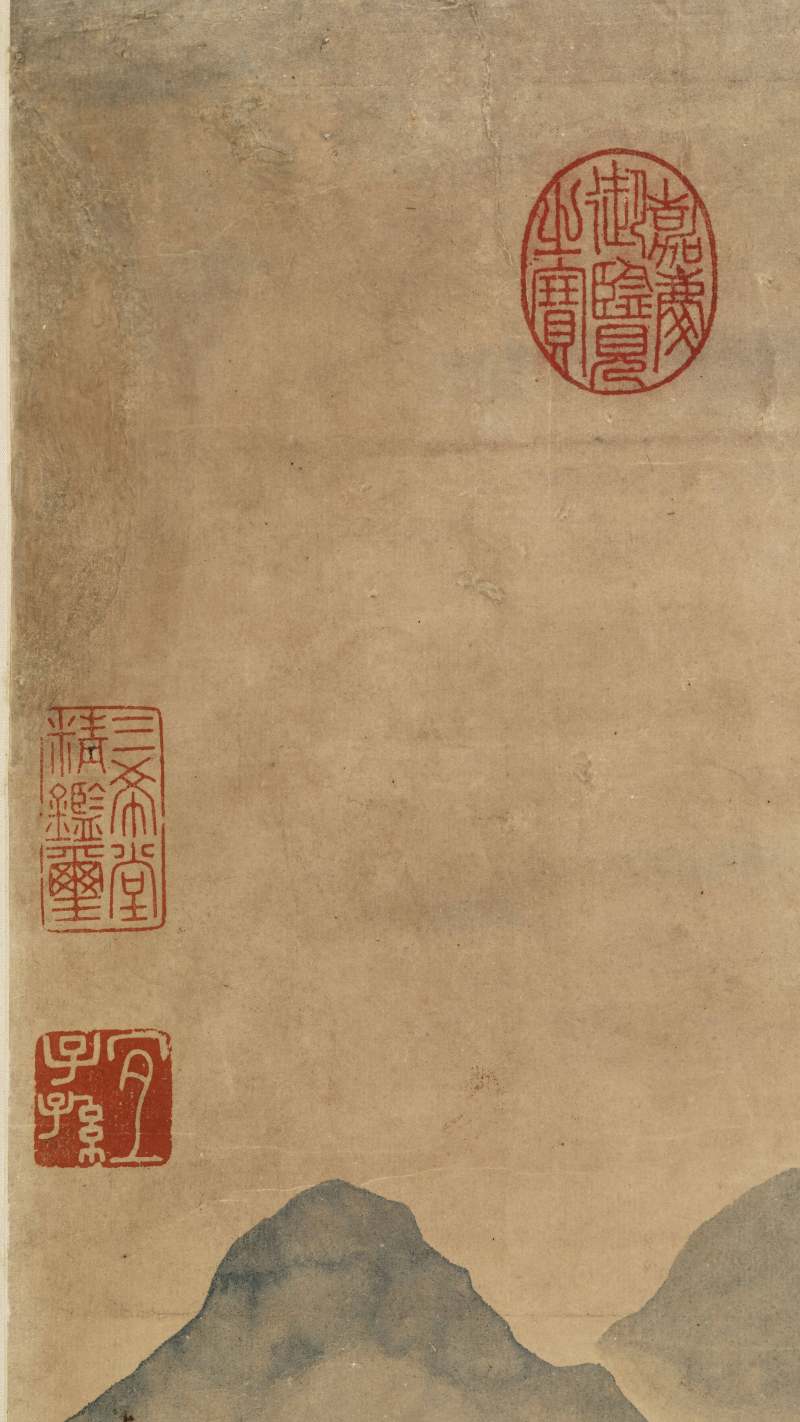 嘉慶
御覽
之寶
三希堂
精鑑璽
宜
子孫